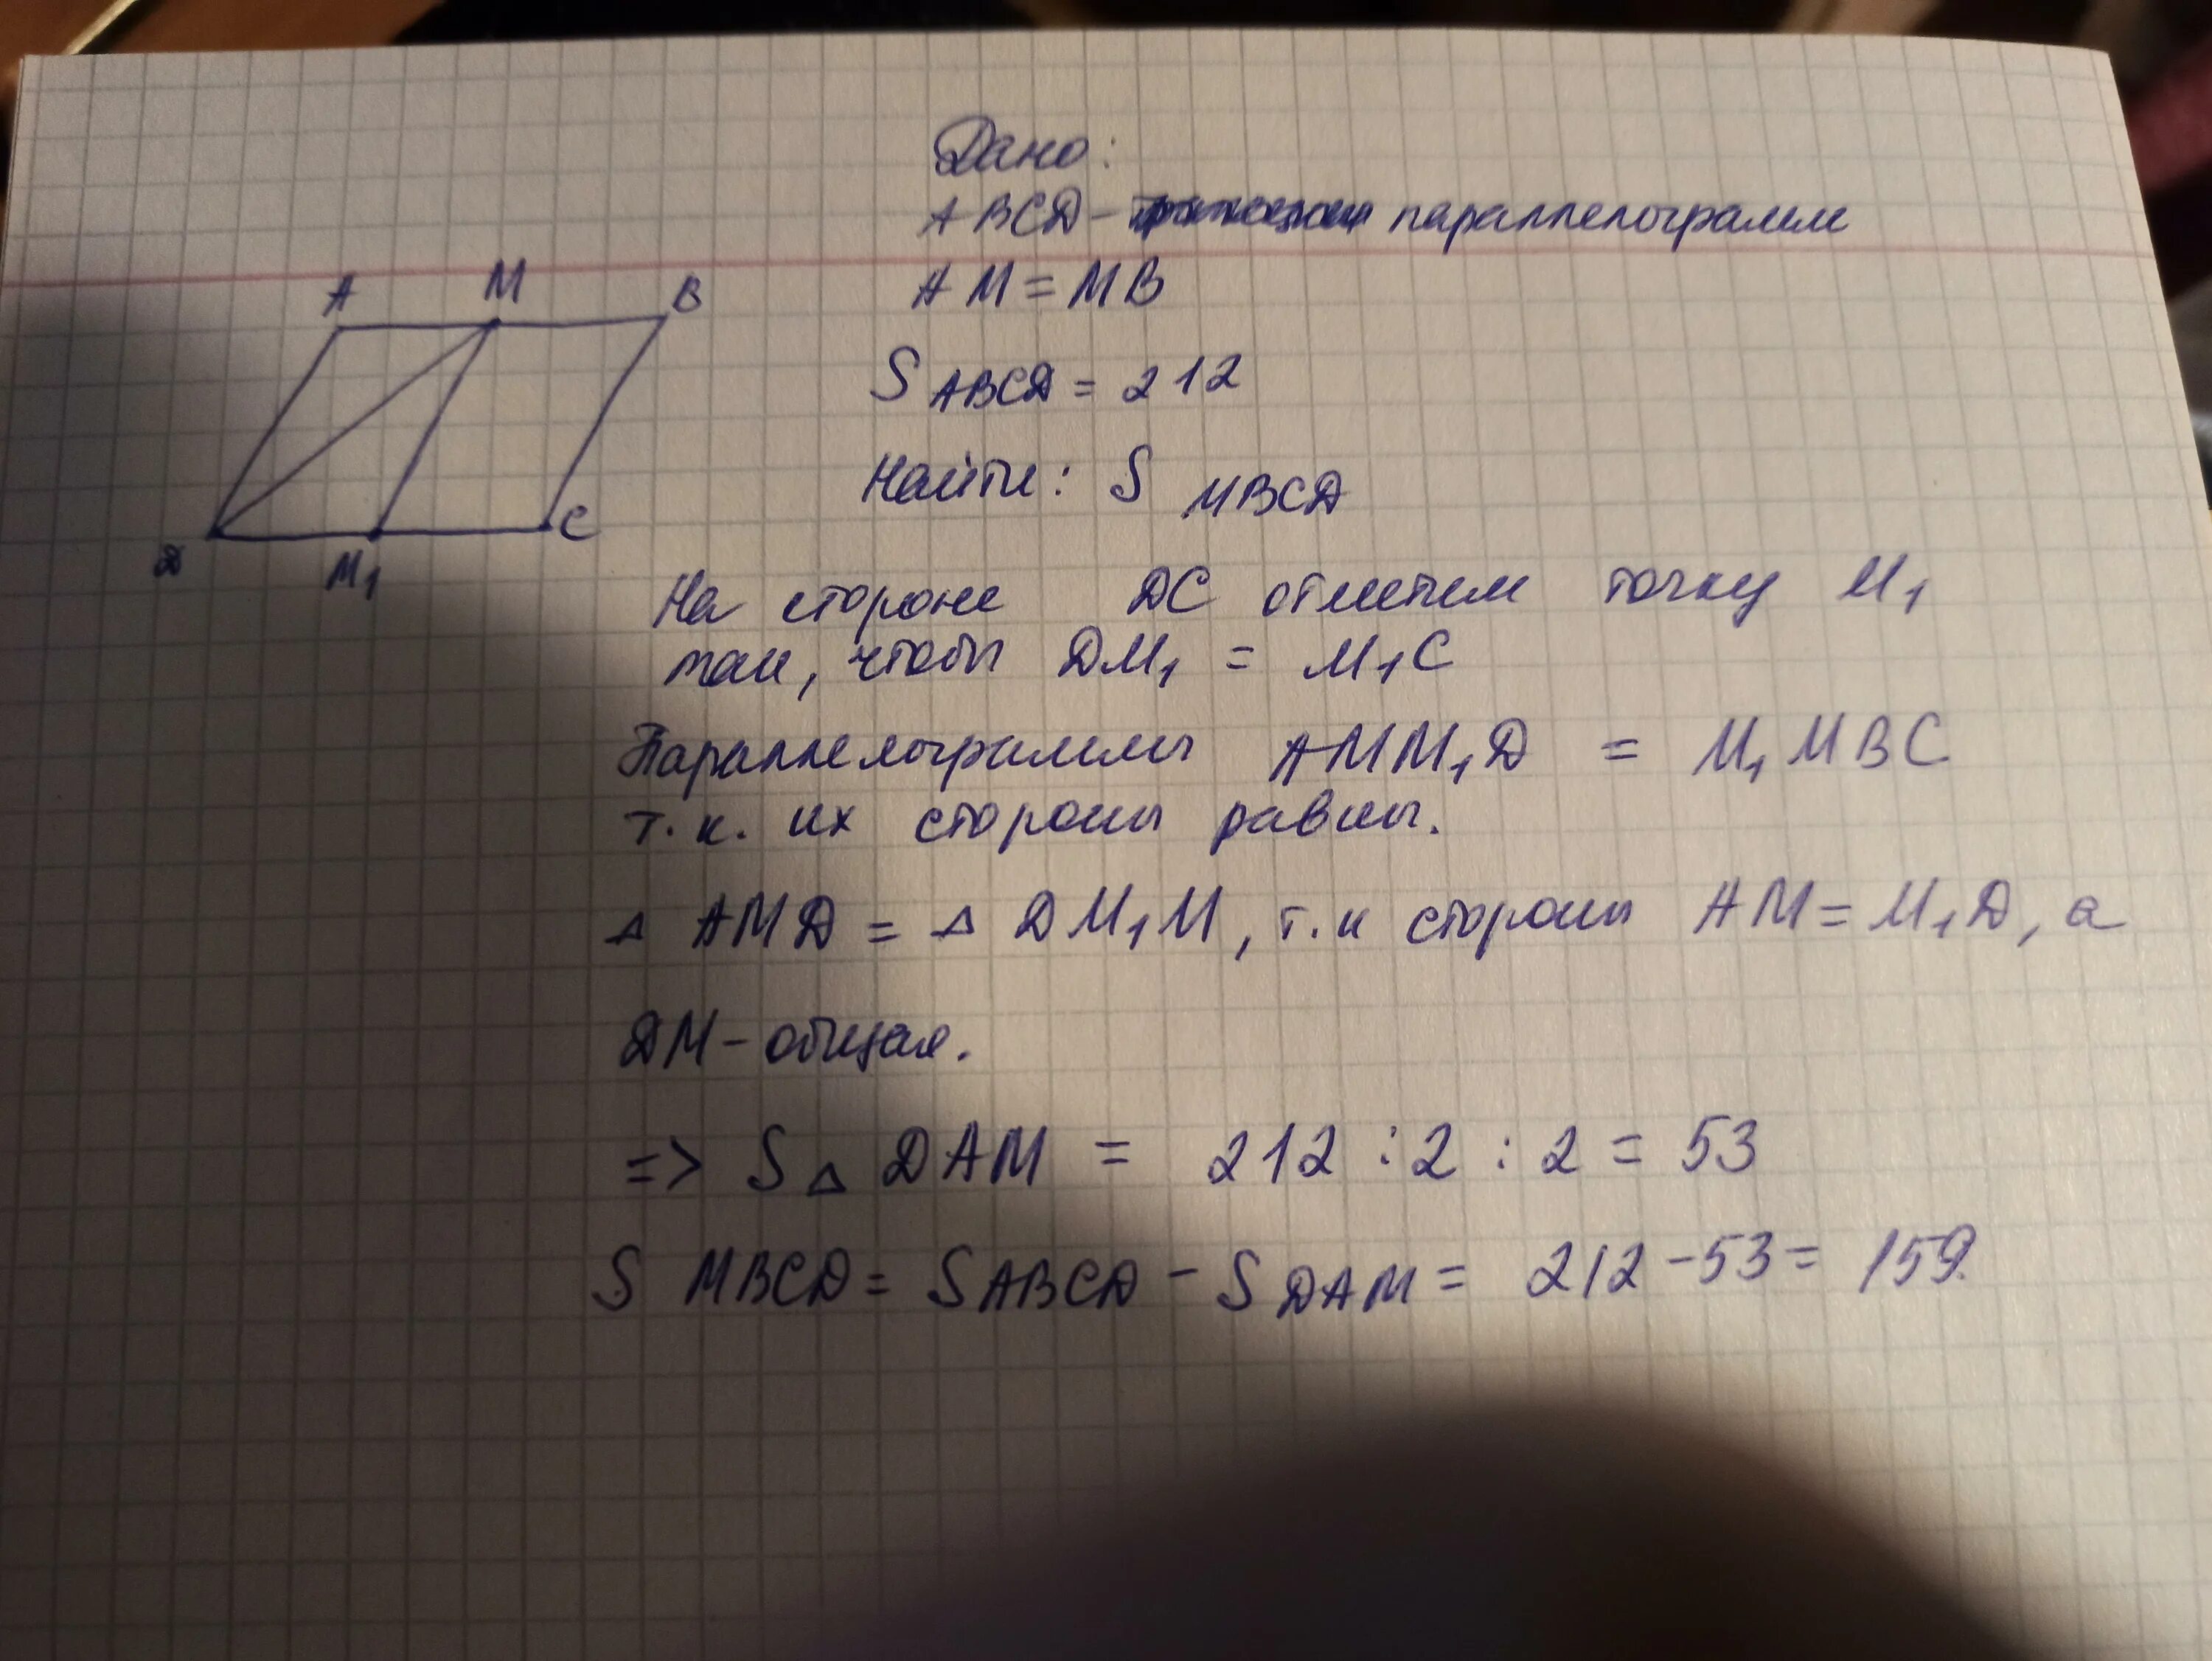 Дано:
ABCD - параллелограмм
AM = MB
S ABCD = 212
Найти: S MBCD
A M B
D M₁ C
На стороне DC отметим точку M₁
так, чтобы DM₁ = M₁C
Параллелограммы AMM₁D = M₁MBC
т.к. их стороны равны.
△ AMD = △ DM₁M, т.к стороны AM = M₁D, а
DM - общая.
=> S△ DAM = 212 : 2 : 2 = 53
S MBCD = S ABCD - S DAM = 212 - 53 = 159.